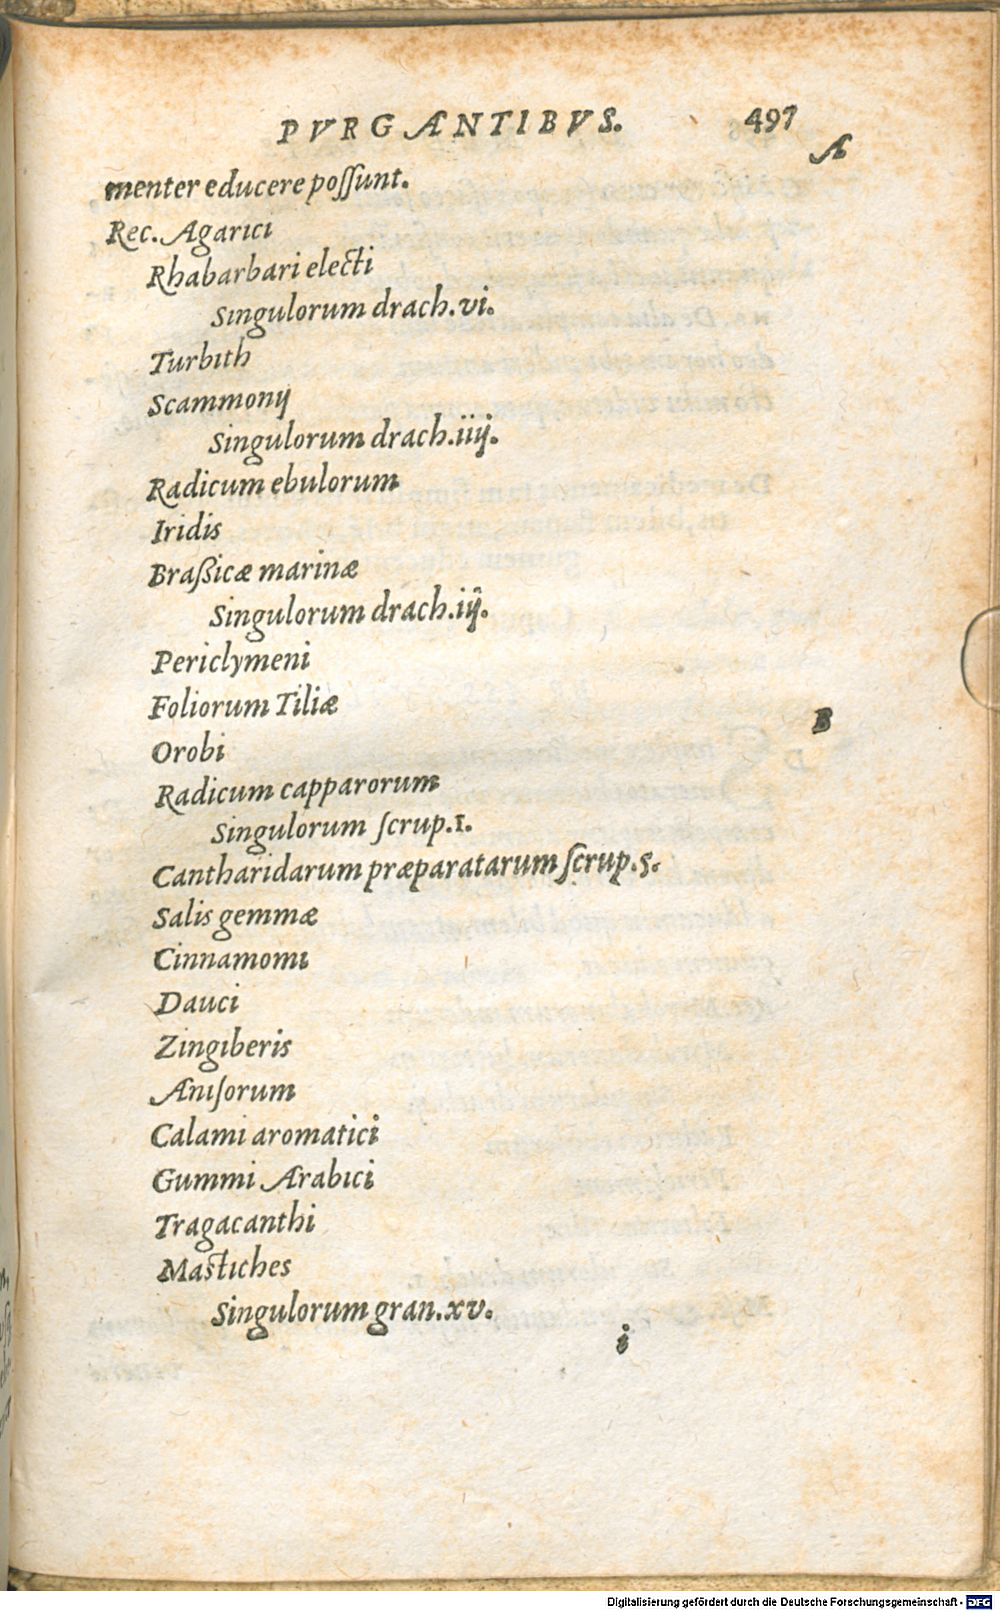 PVRGANTIBVS. 497
A
menter educere poſſunt.
Rec. Agarici
Rhabarbari electi
Singulorum drach. vi.
Turbith
Scammonij
Singulorum drach. iiij.
Radicum ebulorum
Iridis
Braßicæ marinæ
Singulorum drach. iij.
Periclymeni
Foliorum Tiliæ
B
Orobi
Radicum capparorum
Singulorum ſcrup. 1.
Cantharidarum præparatarum ſcrup. s.
Salis gemmæ
Cinnamomi
Dauci
Zingiberis
Aniſorum
Calami aromatici
Gummi Arabici
Tragacanthi
Mastiches
Singulorum gran. xv.
i
Digitalisierung gefördert durch die Deutsche Forschungsgemeinschaft - DFG